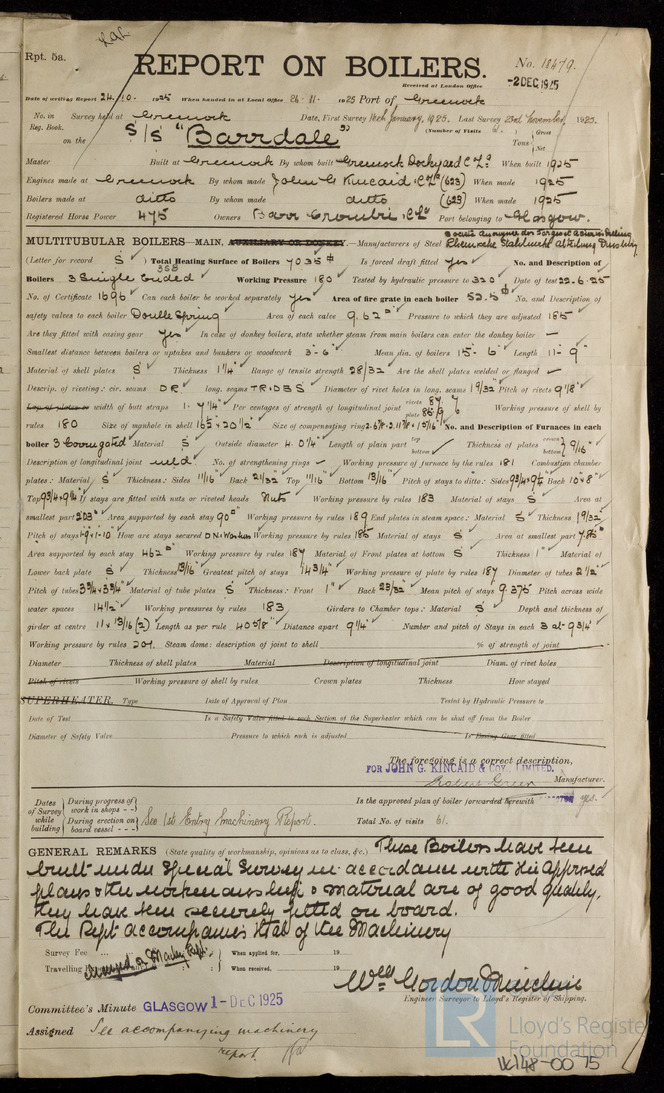 Rpt. 5a.
REPORT ON BOILERS.
No. 18479.
Received at London Office
-2 DEC 1925
Date of writing Report 24.10. 1925 When handed in at Local Office 26.11. 1925 Port of Greenock
No. in Survey held at Greenock Date, First Survey 14th January, 1925. Last Survey 23rd November, 1925.
Reg. Book. (Number of Visits )
on the S/S "Barrdale" Tons Gross Net
Master Built at Greenock By whom built Greenock Dockyard Co Ld When built 1925
Engines made at Greenock By whom made John G Kincaid & Co Ld (623) When made 1925
Boilers made at ditto By whom made ditto (623) When made 1925
Registered Horse Power 475 Owners Barr Crombie & Co Ld Port belonging to Glasgow.
MULTITUBULAR BOILERS—MAIN, AUXILIARY OR DONKEY.—Manufacturers of Steel
(Letter for record S) Total Heating Surface of Boilers 7035 Is forced draft fitted yes No. and Description of
Boilers 3 Single Ended 3SB Working Pressure 180 Tested by hydraulic pressure to 320 Date of test 22.6.25
No. of Certificate 1696 Can each boiler be worked separately yes Area of fire grate in each boiler 52.5 No. and Description of
safety valves to each boiler Double Spring Area of each valve 9.62 Pressure to which they are adjusted 185
Are they fitted with easing gear yes In case of donkey boilers, state whether steam from main boilers can enter the donkey boiler —
Smallest distance between boilers or uptakes and bunkers or woodwork 3'-6" Mean dia. of boilers 15'-6" Length 11'-9"
Material of shell plates S Thickness 1 1/4" Range of tensile strength 28/32 Are the shell plates welded or flanged —
Descrip. of riveting: cir. seams DR long. seams TR.DBS Diameter of rivet holes in long. seams 1 9/32 Pitch of rivets 9 1/8"
Lap of plates or width of butt straps 1-7 1/4" Per centages of strength of longitudinal joint rivets 87. plate 85.9 Working pressure of shell by
rules 180 Size of manhole in shell 16 x 20 1/2" Size of compensating ring No. and Description of Furnaces in each
boiler 3 Corrugated Material S Outside diameter 4.0 1/4" Length of plain part top bottom Thickness of plates crown bottom 9/16"
Description of longitudinal joint weld No. of strengthening rings — Working pressure of furnace by the rules 181 Combustion chamber
plates: Material S Thickness: Sides 11/16 Back 21/32 Top 11/16 Bottom 13/16 Pitch of stays to ditto: Sides 9 3/4 x 9 1/2 Back 10 x 8"
Top 9 3/4 x 9 1/4 If stays are fitted with nuts or riveted heads Nuts Working pressure by rules 183 Material of stays S Area at
smallest part 2.03 Area supported by each stay 90 Working pressure by rules 189 End plates in steam space: Material S Thickness 1 9/32
Pitch of stays How are stays secured DN & Washers Working pressure by rules 185 Material of stays S Area at smallest part 7.85
Area supported by each stay 462 Working pressure by rules 187 Material of Front plates at bottom S Thickness 1" Material of
Lower back plate S Thickness 13/16 Greatest pitch of stays 14 3/4" Working pressure of plate by rules 187 Diameter of tubes 2 1/2"
Pitch of tubes 3 3/4 x 3 3/4 Material of tube plates S Thickness: Front 1" Back 23/32 Mean pitch of stays 9.375 Pitch across wide
water spaces 14 1/2" Working pressures by rules 183 Girders to Chamber tops: Material S Depth and thickness of
girder at centre 11 x 13/16 (2) Length as per rule 40 5/8" Distance apart 9 1/4" Number and pitch of Stays in each 3 at 9 3/4"
Working pressure by rules 201. Steam dome: description of joint to shell % of strength of joint
Diameter Thickness of shell plates Material Description of longitudinal joint Diam. of rivet holes
Pitch of rivets Working pressure of shell by rules Crown plates Thickness How stayed
SUPERHEATER. Type Date of Approval of Plan Tested by Hydraulic Pressure to
Date of Test Is a Safety Valve fitted to each Section of the Superheater which can be shut off from the Boiler
Diameter of Safety Valve Pressure to which each is adjusted Is Easing Gear fitted
The foregoing is a correct description,
FOR JOHN G. KINCAID & COY., LIMITED.
Robert Green Manufacturer.
Dates of Survey while building
During progress of work in shops - -
During erection on board vessel - - -
See 1st Entry Machinery Report.
Is the approved plan of boiler forwarded herewith yes.
Total No. of visits 61.
GENERAL REMARKS (State quality of workmanship, opinions as to class, &c.) These Boilers have been
built under Special Survey in accordance with the approved
plans & the workmanship & material are of good quality,
they have been securely fitted on board.
This Rept accompanies that of the Machinery
Survey Fee ... When applied for, 19
Travelling When received, 19
Charged on Machy Rept.
Wm Gordon
Engineer Surveyor to Lloyd's Register of Shipping.
Committee's Minute GLASGOW 1-DEC 1925
Assigned See accompanying machinery
report.
LR
Lloyd's Register
Foundation
W148-0075